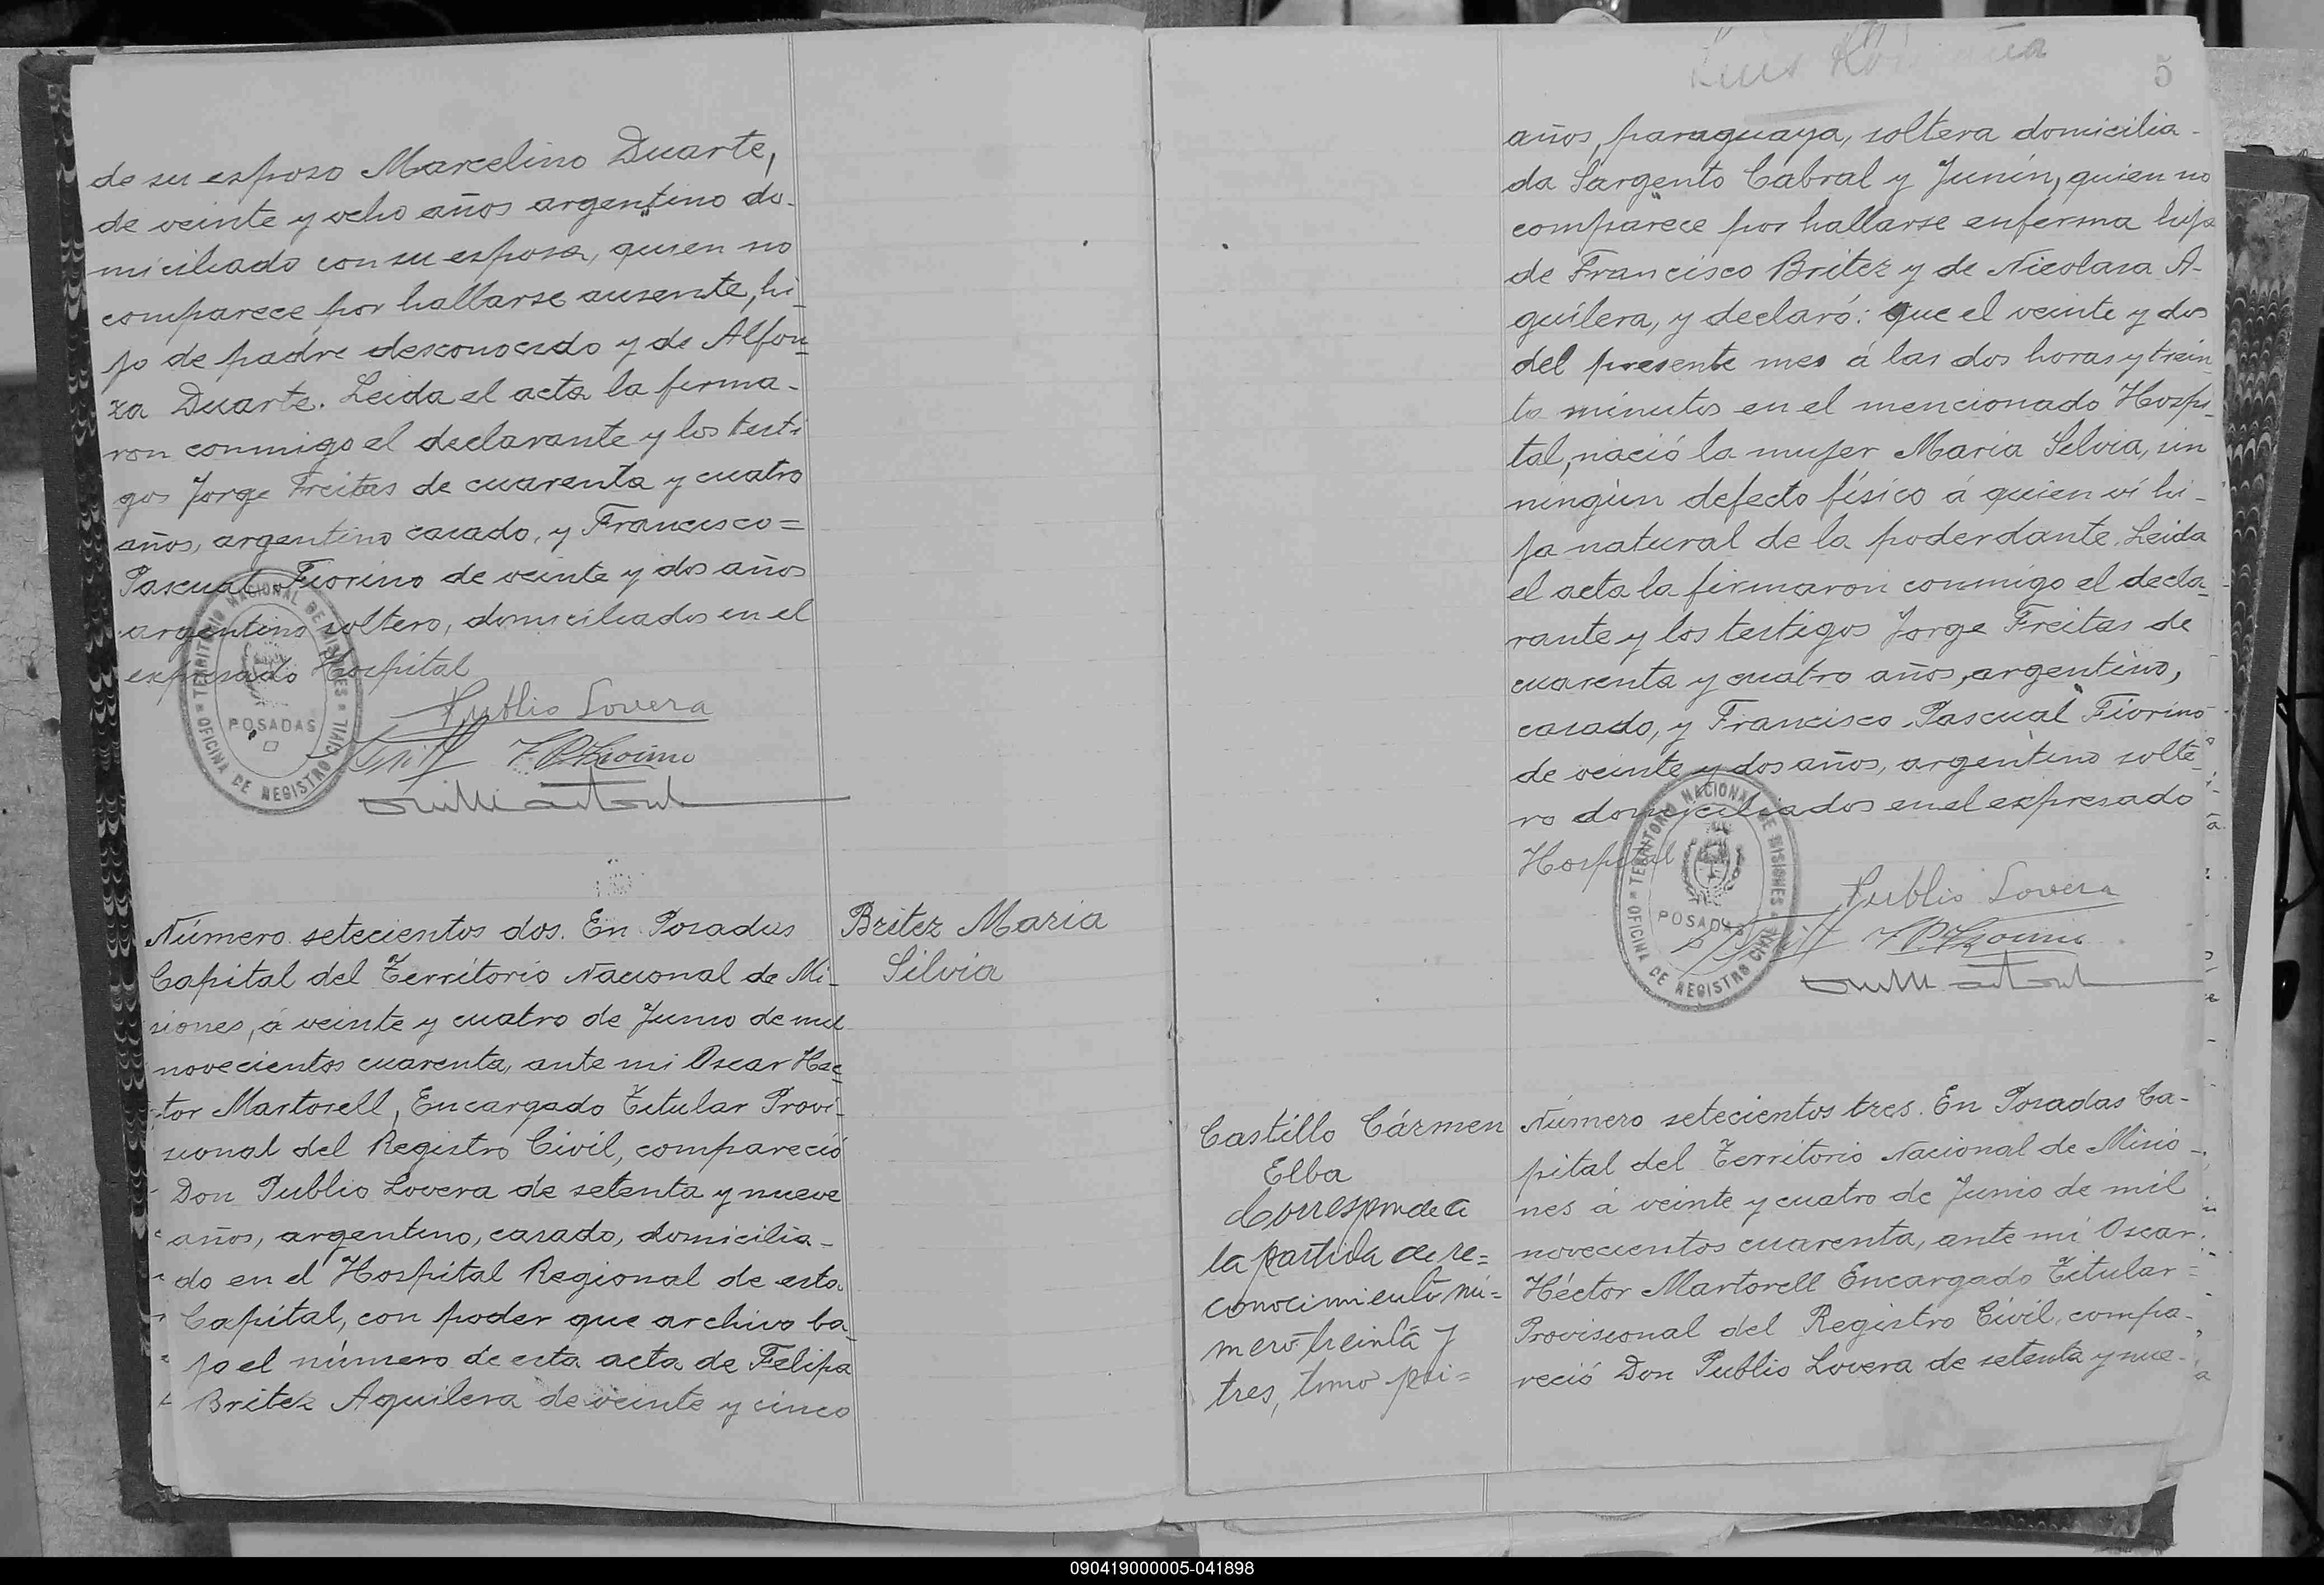 de su esposo Marcelino Duarte,
de veinte y ocho años argentino do-
miciliado con su esposa, quien no
comparece por hallarse ausente, hi-
jo de padre desconocido y de Alfon-
za Duarte. Leida el acta la firma-
ron conmigo el declarante y los testi
gos Jorge Freitas de cuarenta y cuatro
años, argentino casado, y Francisco=
Pascual Fiorino de veinte y dos años
argentino soltero, domiciliados en el
expresado Hospital
Publio Lovera
TERRITORIO NACIONAL DE MISIONES
POSADAS
OFICINA DE REGISTRO CIVIL
Número setecientos dos. En Posadas
Capital del Territorio Nacional de Mi-
siones, á veinte y cuatro de Junio de mil
novecientos cuarenta, ante mi Oscar Hec-
tor Martorell, Encargado Titular Provi-
sional del Registro Civil, compareció
Don Publio Lovera de setenta y nueve
años, argentino, casado, domicilia-
do en el Hospital Regional de esta
Capital, con poder que archivo ba-
jo el número de esta acta de Felipa
Britez Aquilera de veinte y cinco
Britez Maria
Silvia
5
años, paraguaya, soltera domicilia-
da Sargento Cabral y Junín, quien no
comparece por hallarse enferma hija
de Francisco Britez y de Nicolasa A-
guilera, y declaró: que el veinte y dos
del presente mes á las dos horas y trein
ta minutos en el mencionado Hospi-
tal, nació la mujer Maria Silvia, sin
ningún defecto físico á quien ví hi-
ja natural de la poderdante. Leida
el acta la firmaron conmigo el decla-
rante y los testigos Jorge Freitas de
cuarenta y cuatro años, argentino,
casado, y Francisco Pascual Fiorino
de veinte y dos años, argentino solte-
ro domiciliados en el expresado
Hospital
Publio Lovera
TERRITORIO NACIONAL DE MISIONES
POSADAS
OFICINA DE REGISTRO CIVIL
Castillo Cármen
Elba
Corresponde a
la partida de re=
conocimiento nú=
mero treinta y
tres, tomo pri=
Número setecientos tres. En Posadas Ca-
pital del Territorio Nacional de Misio-
nes á veinte y cuatro de Junio de mil
novecientos cuarenta, ante mí Oscar
Héctor Martorell Encargado Titular
Provisional del Registro Civil, compa-
reció Don Publio Lovera de setenta y nue-
090419000005-041898